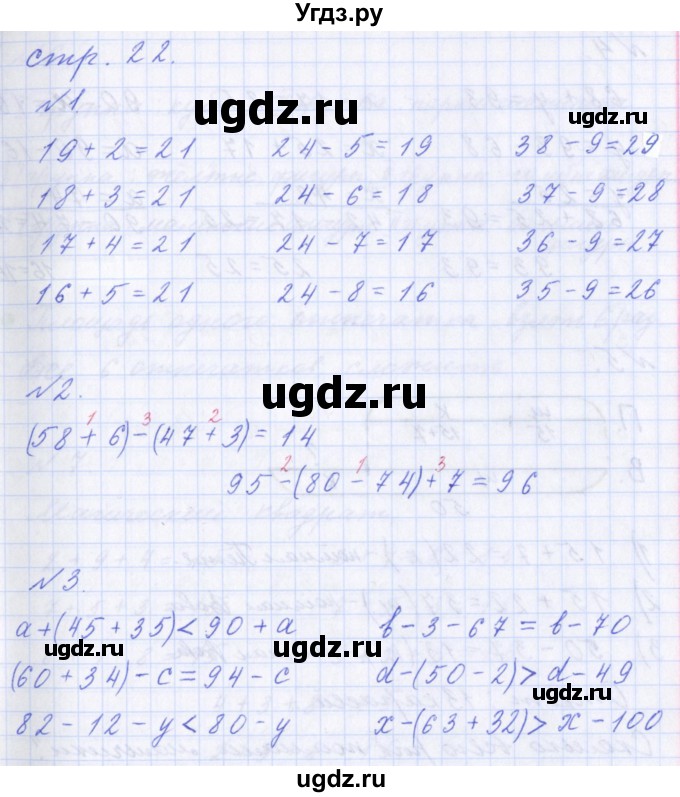 Угдз.ру
стр. 22.
№1
ugdz.ru
19 + 2 = 21 24 - 5 = 19 38 - 9 = 29
18 + 3 = 21 24 - 6 = 18 37 - 9 = 28
17 + 4 = 21 24 - 7 = 17 36 - 9 = 27
16 + 5 = 21 24 - 8 = 16 35 - 9 = 26
№2.
ugdz.ru
1 3 2
(58 + 6) - (47 + 3) = 14
2 1 3
95 - (80 - 74) + 7 = 96
ugdz.ru
№3.
a + (45 + 35) < 90 + a b - 3 - 67 = b - 70
ugdz.ru ugdz.ru
(60 + 34) - c = 94 - c d - (50 - 2) > d - 49
ugdz.ru
82 - 12 - y < 80 - y x - (63 + 32) > x - 100
ugdz.ru
ugdz.ru